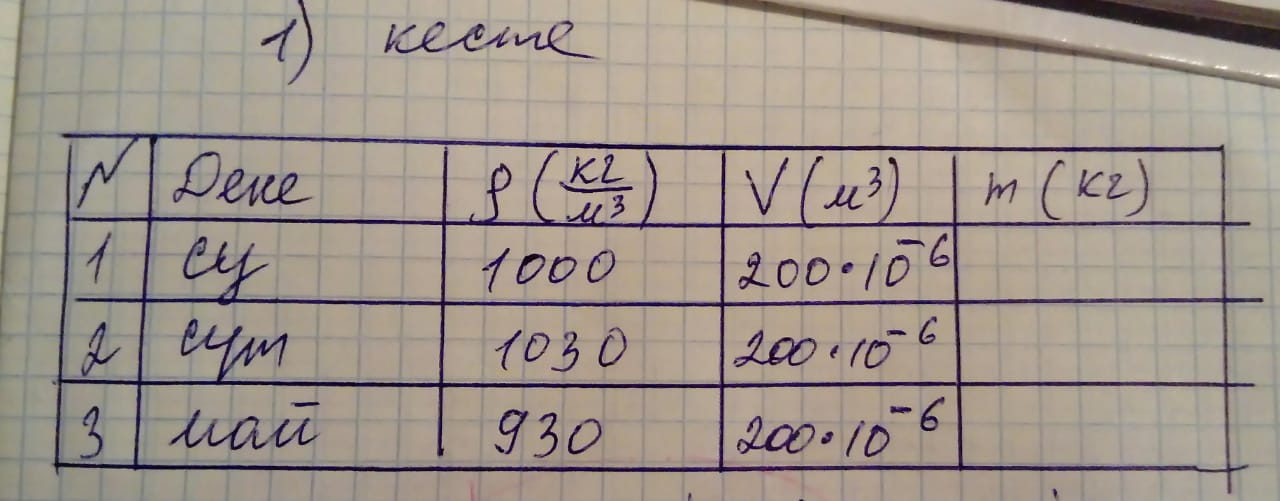 1) кесте
N Дене ρ (кг/м³) V (м³) m (кг)
1 су 1000 200·10⁻⁶
2 сүт 1030 200·10⁻⁶
3 май 930 200·10⁻⁶